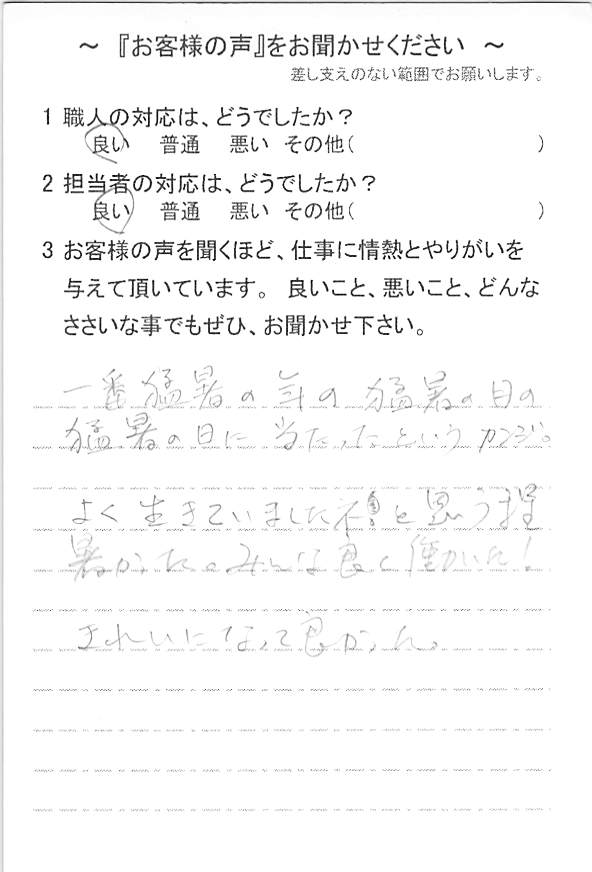 ～ 『お客様の声』をお聞かせください ～
差し支えのない範囲でお願いします。
1 職人の対応は、どうでしたか？
良い 普通 悪い その他( )
2 担当者の対応は、どうでしたか？
良い 普通 悪い その他( )
3 お客様の声を聞くほど、仕事に情熱とやりがいを
与えて頂いています。 良いこと、悪いこと、どんな
ささいな事でもぜひ、お聞かせ下さい。
一番猛暑の年の猛暑の日の
猛暑の日に当たったというカンジ。
よく生きていましたネ!と思う程
暑かった。みんな良く働いた!
きれいになって良かった。